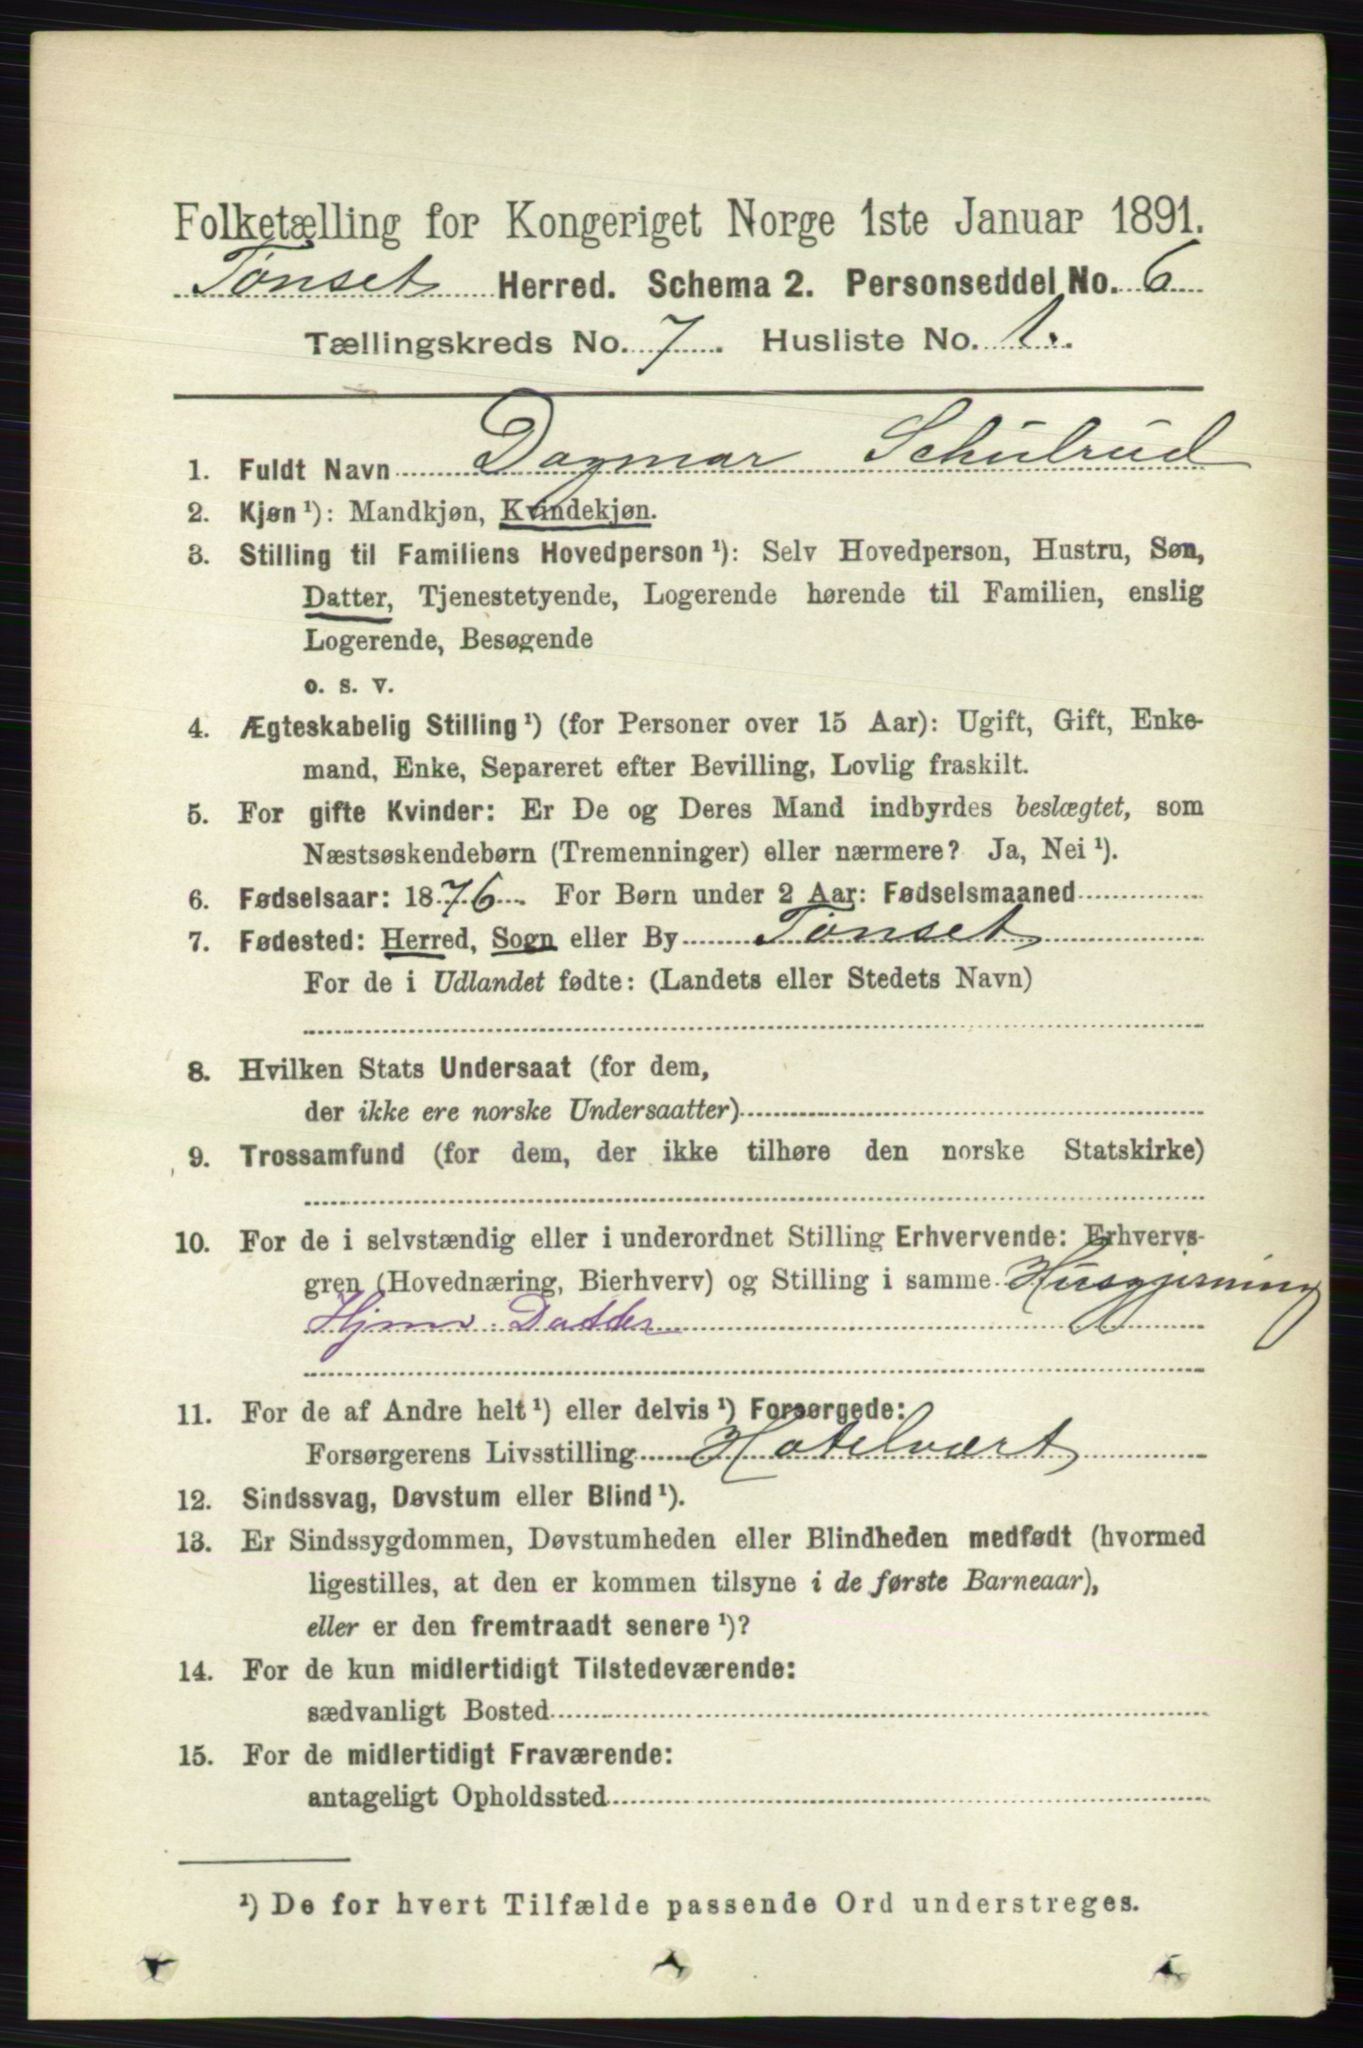 Folketælling for Kongeriget Norge 1ste Januar 1891.
Tønset Herred. Schema 2. Personseddel No. 6
Tællingskreds No. 7. Husliste No. 1.
1. Fuldt Navn Dagmar Schulrud
2. Kjøn ¹): Mandkjøn, Kvindekjøn.
3. Stilling til Familiens Hovedperson ¹): Selv Hovedperson, Hustru, Søn,
Datter, Tjenestetyende, Logerende hørende til Familien, enslig
Logerende, Besøgende
o. s. v.
4. Ægteskabelig Stilling ¹) (for Personer over 15 Aar): Ugift, Gift, Enke-
mand, Enke, Separeret efter Bevilling, Lovlig fraskilt.
5. For gifte Kvinder: Er De og Deres Mand indbyrdes beslægtet, som
Næstsøskendebørn (Tremenninger) eller nærmere? Ja, Nei ¹).
6. Fødselsaar: 1876. For Børn under 2 Aar: Fødselsmaaned
7. Fødested: Herred, Sogn eller By Tønset
For de i Udlandet fødte: (Landets eller Stedets Navn)
8. Hvilken Stats Undersaat (for dem,
der ikke ere norske Undersaatter)
9. Trossamfund (for dem, der ikke tilhøre den norske Statskirke)
10. For de i selvstændig eller i underordnet Stilling Erhvervende: Erhvervs-
gren (Hovednæring, Bierhverv) og Stilling i samme Husgjerning
Hjmv. Datter
11. For de af Andre helt ¹) eller delvis ¹) Forsørgede:
Forsørgerens Livsstilling Hotelvært
12. Sindssvag, Døvstum eller Blind ¹).
13. Er Sindssygdommen, Døvstumheden eller Blindheden medfødt (hvormed
ligestilles, at den er kommen tilsyne i de første Barneaar),
eller er den fremtraadt senere ¹)?
14. For de kun midlertidigt Tilstedeværende:
sædvanligt Bosted
15. For de midlertidigt Fraværende:
antageligt Opholdssted
¹) De for hvert Tilfælde passende Ord understreges.